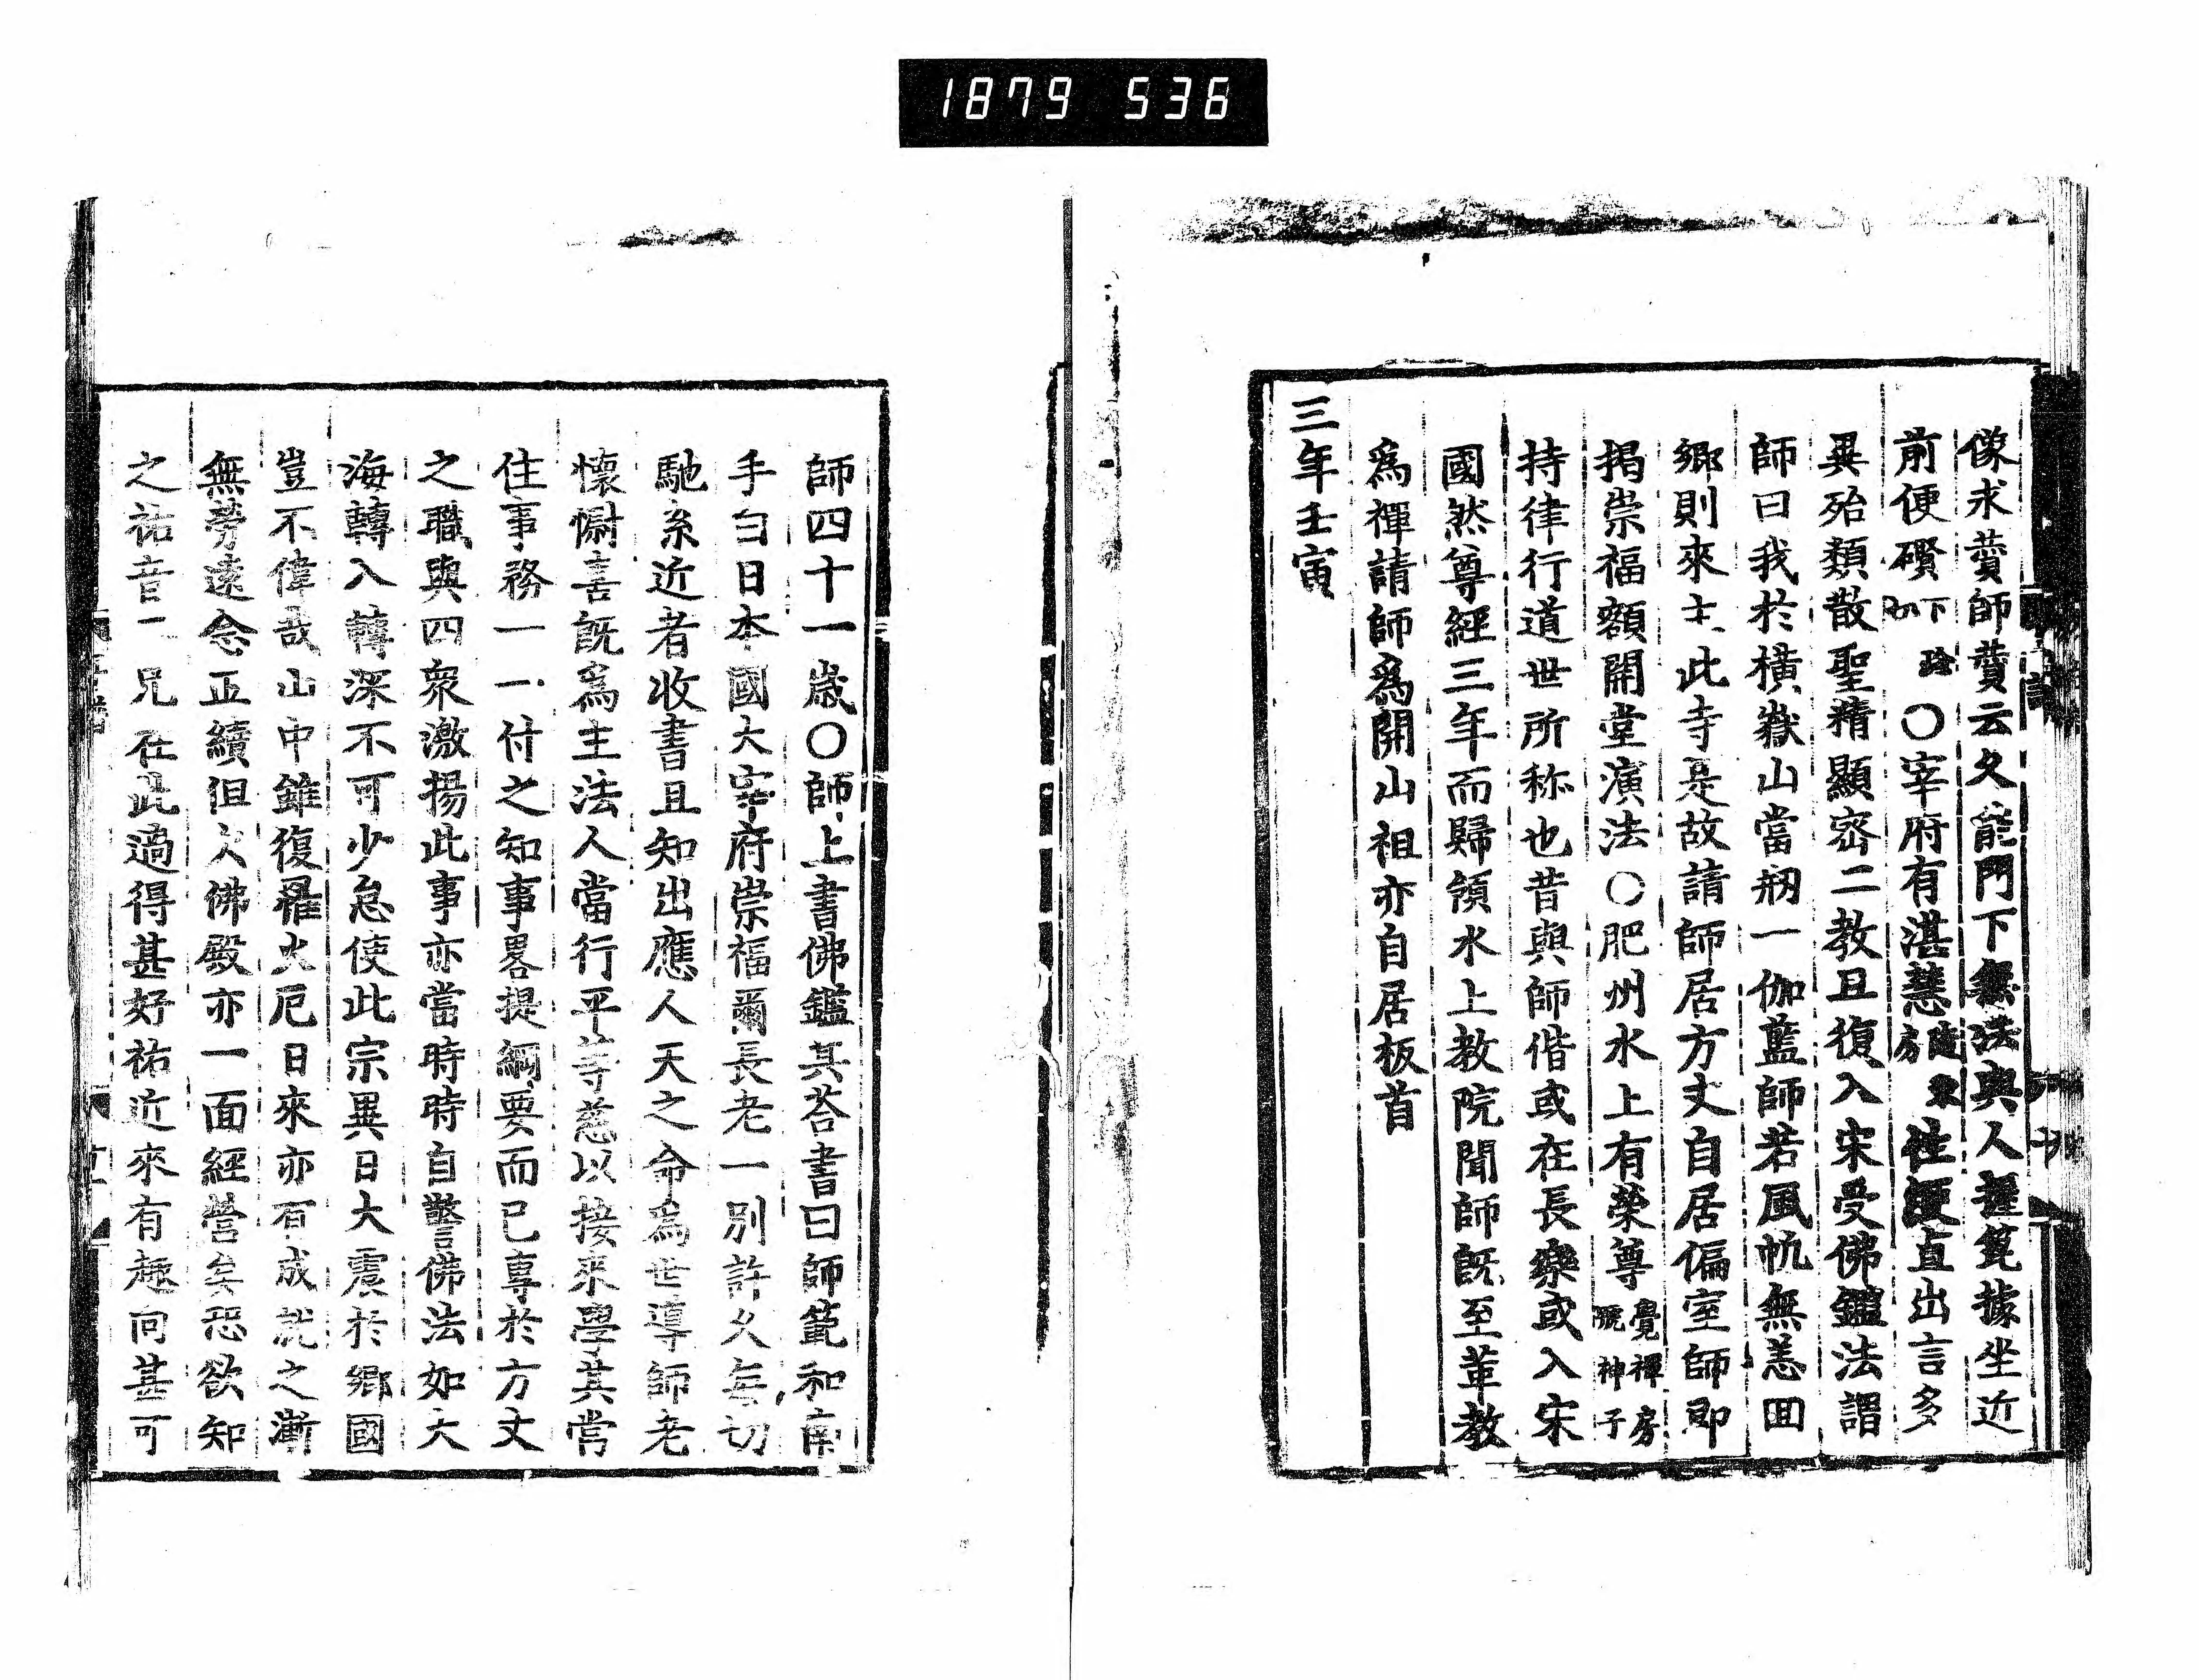 1879 536
像求贊師贊云久能門下無法與人握篦據坐近
前便礩下劄玲○宰府有湛慧隨乘房性硬直出言多
異殆類散聖精顯密二教且復入宋受佛鑑法謂
師曰我於橫嶽山當剏一伽藍師若風帆無恙回
鄉則來主此寺是故請師居方丈自居偏室師即
揭崇福額開堂演法○肥州水上有榮尊覺禪房號神子
持律行道世所称也昔與師偕或在長樂或入宋
國然尊經三年而歸領水上教院聞師既至革教
為禪請師為開山祖亦自居板首
三年壬寅
師四十一歲○師上書佛鑑其荅書曰師範和南
手白日本國大宰府崇福爾長老一別許久每切
馳系近者收書且知出應人天之命為世導師老
懷慰喜既為主法人當行平等慈以接來學其常
住事務一一付之知事畧提綱要而已專於方丈
之職與四衆激揚此事亦當時時自警佛法如大
海轉入轉深不可少怠使此宗異日大震於鄉國
豈不偉哉山中雖復罹火厄日來亦有成就之漸
無勞遠念正續但大佛殿亦一面經營矣恐欲知
之祐音二兄在此過得甚好祐近來有趣向甚可